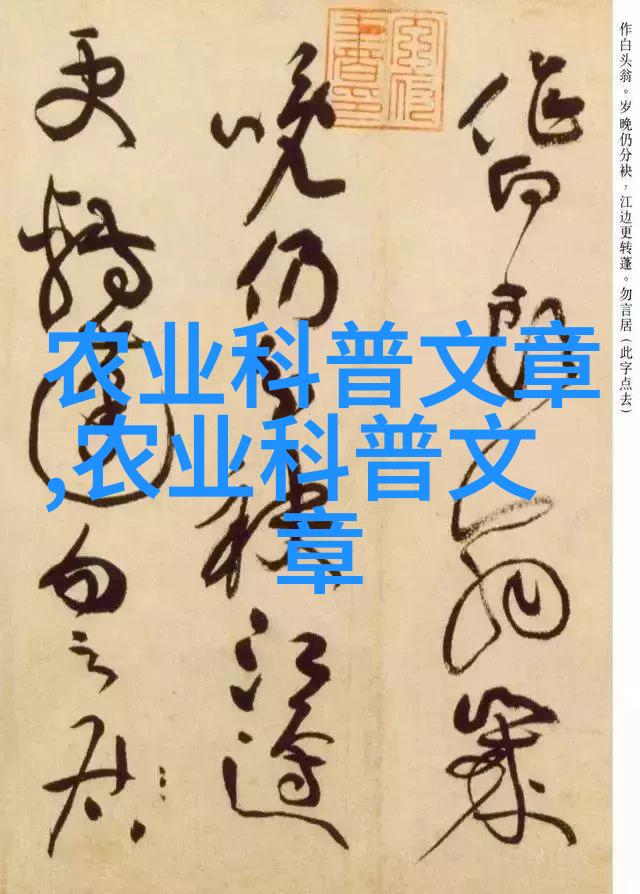 作白头翁。岁晚仍分袂，江边更转蓬。勿言居（此字点去）
作白頭翁歲
晚仍分袂江邊
更轉蓬勿言居
农业科普文章
,农业科普文
章